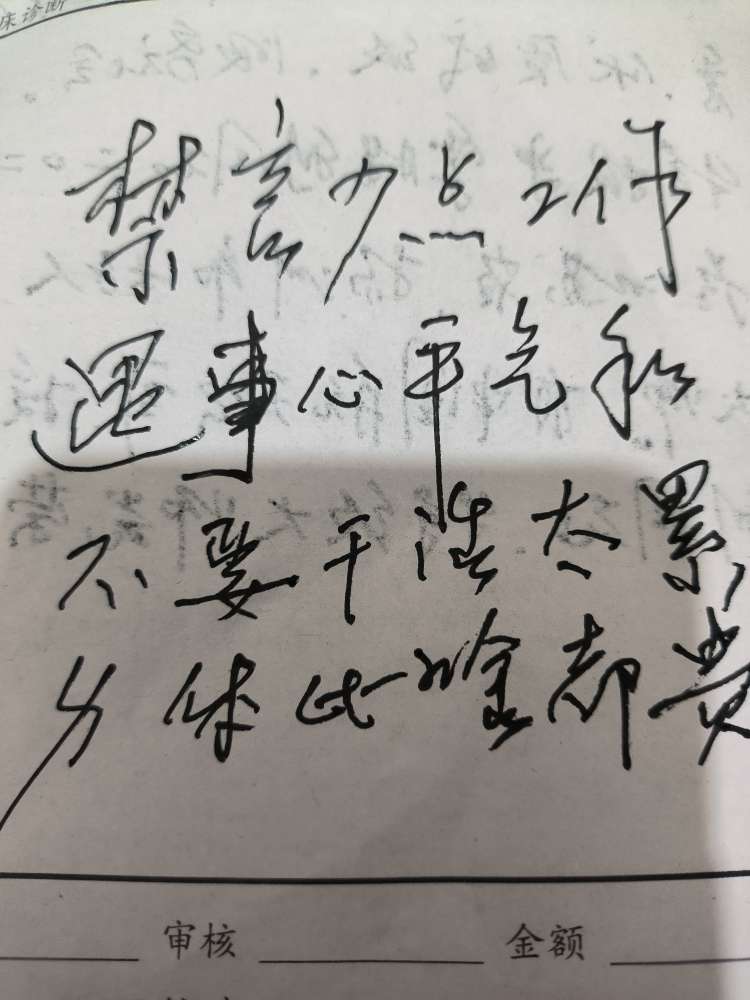 床诊断
禁言少点工作
遇事心平气和
不要干活太累
身体比啥都贵
审核 金额